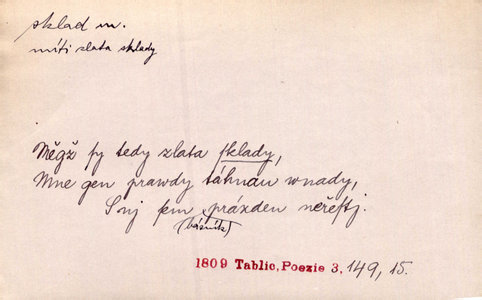 sklad m.
míti zlata sklady
Měgž sy tedy zlata sklady,
Mne gen prawdy táhnau wnady,
prázden neřestj.
(básník)
1809 Tablic, Poezie 3, 149, 15.